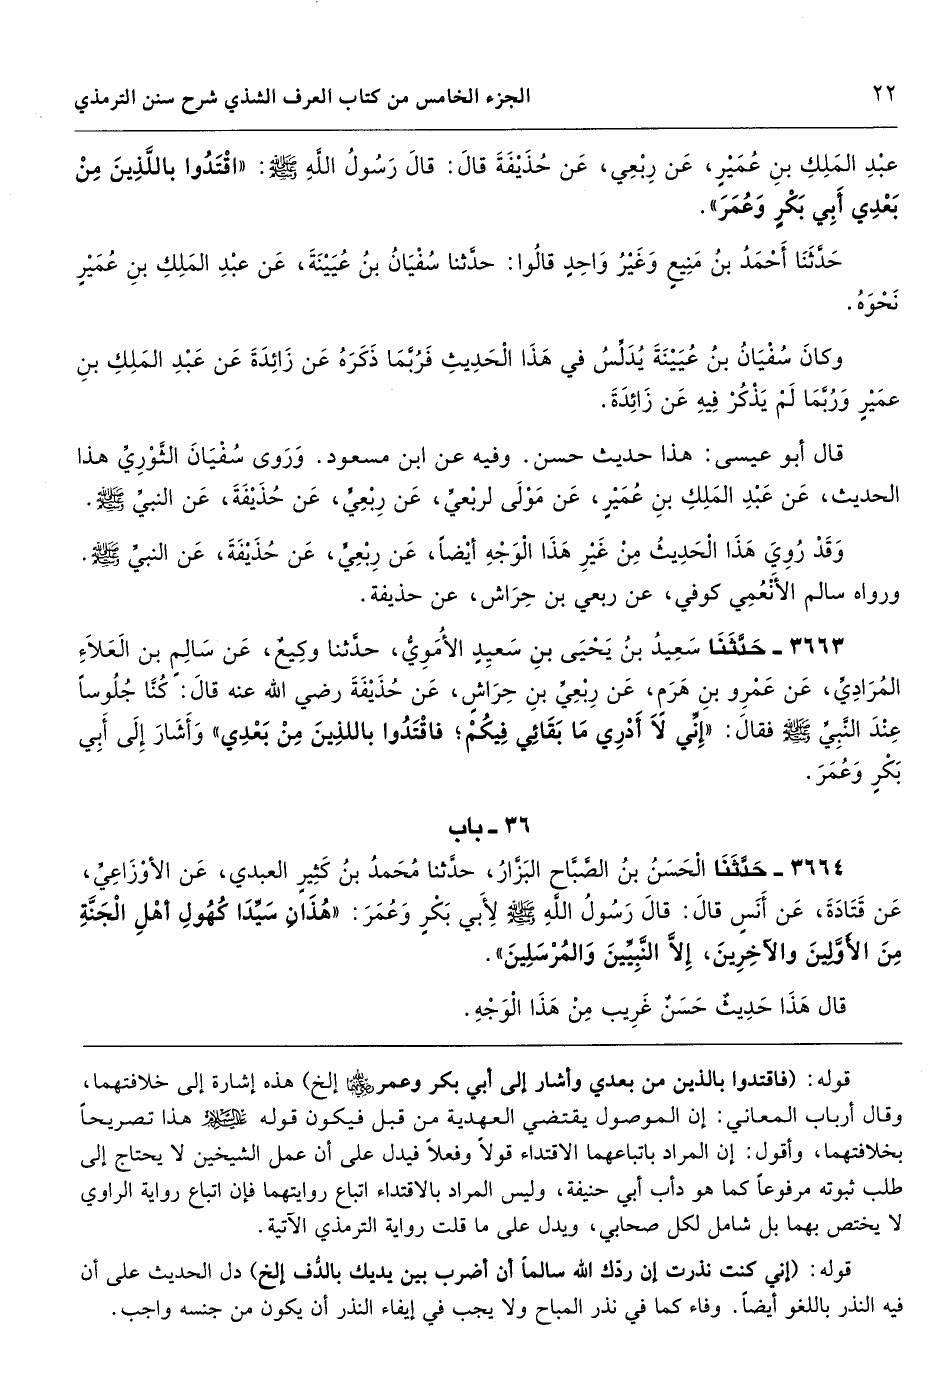 ٢٢ الجزء الخامس من كتاب العرف الشذي شرح سنن الترمذي
عبْدِ المَلِكِ بنِ عُمَيْرٍ، عَن رِبْعِي، عَن حُذَيْفَةَ قالَ: قالَ رَسُولُ اللَّهِ ﷺ: «اقْتَدُوا باللَّذِينَ مِنْ
بَعْدِي أَبِي بَكْرٍ وَعُمَرَ».
حَدَّثَنَا أَحْمَدُ بنُ مَنِيعٍ وَغَيْرُ وَاحِدٍ قالُوا: حدَّثنا سُفْيَانُ بنُ عُيَيْنَةَ، عَن عبْدِ المَلِكِ بنِ عُمَيْرٍ
نَحْوَهُ.
وكانَ سُفْيَانُ بنُ عُيَيْنَةَ يُدَلِّسُ في هَذَا الْحَدِيثِ فَرُبَّمَا ذَكَرَهُ عَن زَائِدَةَ عَن عَبْدِ المَلِكِ بنِ
عمَيْرٍ وَرُبَّمَا لَمْ يَذْكُرْ فِيهِ عَن زَائِدَةَ.
قال أبو عيسى: هذا حديث حسن. وفيه عن ابن مسعود. وَرَوى سُفْيَانَ الثَّوْرِيِّ هذا
الحديث، عَن عَبْدِ المَلِكِ بنِ عُمَيْرٍ، عَن مَوْلَى لربْعيِّ، عَن رِبْعِيِّ، عَن حُذَيْفَةَ، عَن النبيِّ ﷺ.
وَقَدْ رُوِيَ هَذَا الْحَدِيثُ مِنْ غَيْرِ هَذَا الْوَجْهِ أيْضاً، عَن رِبْعِيٍّ، عَن حُذَيْفَةَ، عَن النبيِّ ﷺ.
ورواه سالم الأَنْعُمِي كوفي، عن ربعي بن حِرَاش، عن حذيفة.
٣٦٦٣ ـ حَدَّثَنَا سَعِيدُ بنُ يَحْيَى بنِ سَعيدٍ الأُمَوِيُّ، حدَّثنا وكِيعٌ، عَن سَالِمٍ بن العَلاَءِ
المُرَادِيِّ، عَن عَمْرِو بنِ هَرَمٍ، عَن رِبْعِيِّ بنِ حِرَاشٍ، عَن حُذَيْفَةَ رضي الله عنه قالَ: كُنَّا جُلُوساً
عِنْدَ النَّبِيِّ ﷺ فقالَ: «إِنِّي لاَ أَدْرِي مَا بَقَائِي فِيكُمْ؛ فاقْتَدُوا باللذِينَ مِنْ بَعْدِي» وَأَشَارَ إِلَى أَبِي
بَكْرٍ وَعُمَرَ.
٣٦ ـ باب
٣٦٦٤ ـ حَدَّثَنَا الْحَسَنُ بنُ الصَّبَّاحِ البَزَّارُ، حدَّثنا مُحَمدُ بنُ كَثِيرٍ العبدي، عَن الأَوْزَاعِيِّ،
عَن قَتَادَةَ، عَن أَنَسٍ قالَ: قالَ رَسُولُ اللَّهِ ﷺ لِأَبِي بَكْرٍ وَعُمَرَ: «هُذَانِ سَيِّدَا كُهُولِ أهْلِ الْجَنَّةِ
مِنَ الأَوَّلِينَ والآخِرِينَ، إِلاَّ النَّبِيِّينَ وَالمُرْسَلِينَ».
قال هَذَا حَدِيثٌ حَسَنٌ غَرِيب مِنْ هَذَا الْوَجْهِ.
قوله: (فاقتدوا بالذين من بعدي وأشار إلى أبي بكر وعمر إلخ) هذه إشارة إلى خلافتهما،
وقال أرباب المعاني: إن الموصول يقتضي العهدية من قبل فيكون قوله هذا تصريحاً
بخلافتهما، وأقول: إن المراد باتباعهما الاقتداء قولاً وفعلاً فيدل على أن عمل الشيخين لا يحتاج إلى
طلب ثبوته مرفوعاً كما هو دأب أبي حنيفة، وليس المراد بالاقتداء اتباع روايتهما فإن اتباع رواية الراوي
لا يختص بهما بل شامل لكل صحابي، ويدل على ما قلت رواية الترمذي الآتية.
قوله: (إني كنت نذرت إن ردّك الله سالماً أن أضرب بين يديك بالدُّف إلخ) دل الحديث على أن
فيه النذر باللغو أيضاً. وفاء كما في نذر المباح ولا يجب في إيفاء النذر أن يكون من جنسه واجب.